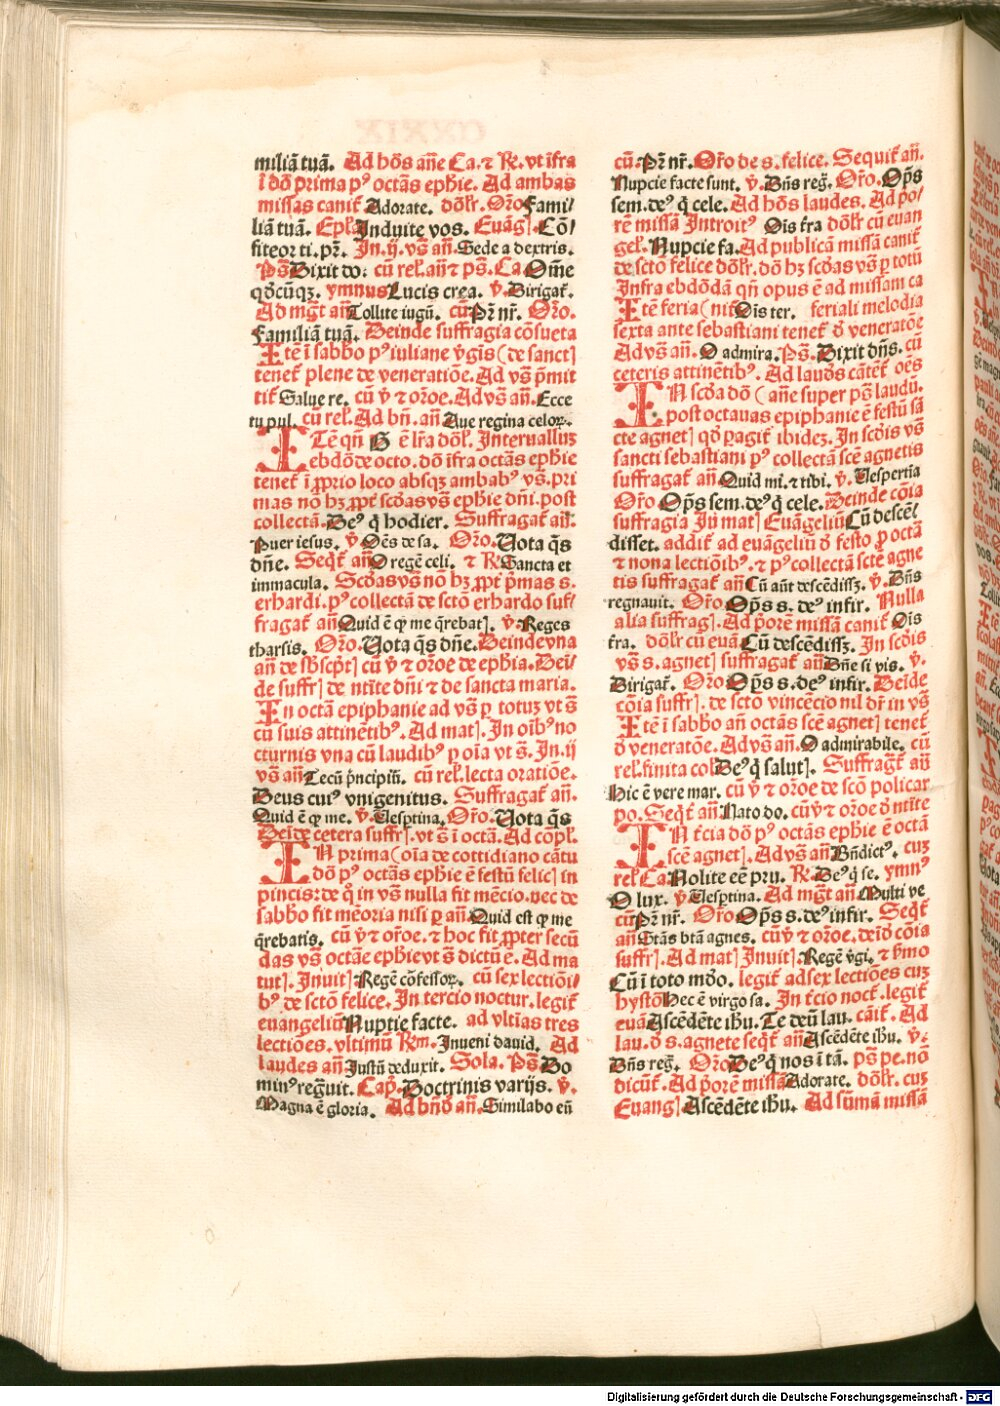 miliā tuā. Ad hōs añe Ca. ⁊ R̶. vt īfra
ī dō prima pꝰ octās ephie. Ad ambas
missas canit̄ Adorate. dōlr̄. Or̄o Fami⸗
liā tuā. Epl̄a Induite vos. Euāg]. Cō⸗
fiteor ti. pr̄. In. ij. vs̄ añ. Sede a dextris.
Ps̄ Dixit do: cū rel̄. añ ⁊ ps̄. Ca. Om̄e
qd̄cūqꝫ. ymnus Lucis crea. v̄. Dirigat̄.
Ad mḡt añ Tollite iugū. cū Pr̄ nr̄. Or̄o.
Familiā tuā. Deinde suffragia cōsueta
Itē ī sabbo pꝰ iuliane v̄gīs (de sanct]
tenet̄ plene de veneratiōe. Ad vs̄ p̄mit
tit̄ Salue re. cū v̄ ⁊ or̄oe. Ad vs̄ añ. Ecce
tu pul. cū rel̄. Ad bñ. añ Aue regina celoꝝ.
ITē qñ G ē lr̄a dōl̄. Interuallum
ebdōde octo. dō īfra octās ephie
tenet̄ ī ꝓprio loco absqꝫ ambabꝰ vs̄. pri
mas nō hꝫ ꝓpt̄ scd̄as vs̄ ephie dñi. post
collectā. Deꝰ q̄ hodier. Suffragat̄ añ.
Puer iesus. v̄ Om̄s de sa. Or̄o. Uota q̄s
dñe. Seqt̄ añ O regē celi. ⁊ R̶ Sancta et
immacula. Scd̄as vs̄ nō hꝫ ꝓpt̄ p̄mas s.
erhardi. pꝰ collectā de sctō erhardo suf⸗
fragat̄ añ Quid ē ꝙ me q̄rebat]. v̄. Reges
tharsis. Or̄o. Uota q̄s dñe. Deinde vna
añ de sb̄scp̄t] cū v̄ ⁊ or̄oe de ephia. Dei⸗
de suffr] de ntīte dñi ⁊ de sancta maria.
In octā epiphanie ad vs̄ ꝑ totuꝫ vt s̄
cū suis attinētibꝰ. Ad mat]. In oībꝰ no
cturnis vna cū laudibꝰ ꝑ oīa vt s̄. In. ij
vs̄ añ Tecū p̄ncipiū. cū rel̄. lecta oratiōe.
Deus cuiꝰ vnigenitus. Suffragat̄ añ.
Quid ē ꝙ me. v̄. Uesptina. Or̄o. Uota q̄s
Deīde cetera suffr]. vt s̄ ī octā. Ad cōpl̄.
IN prima (oīa de cottidiano cātu
dō pꝰ octās ephie ē festū felic] in
pincis: de q̄ in vs̄ nulla fit mēcio. nec de
sabbo fit mēoria nisi ꝑ añ. Quid est ꝙ me
q̄rebatis. cū v̄ ⁊ or̄oe. ⁊ hoc fit ꝓpter secū
das vs̄ octāe ephie vt s̄ dictū e. Ad ma
tut]. Inuit] Regē cōfessoꝝ. cū sex lectiōi⸗
bꝰ de sctō felice. In tercio noctur. legit̄
euangeliū Nuptie facte. ad vltīas tres
lectiōes. vltimū R̶m. Inueni dauid. Ad
laudes añ Justū deduxit. Sola. Ps̄ Do
minꝰ regnuit. Cap̄. Doctrinis varijs. v̄.
Magna ē gloria. Ad bn̄d añ. Similabo eū
cū. Pr̄ nr̄. Or̄o de s. felice. Sequit̄ añ.
Nupcie facte sunt. v̄. Dñs reḡ. Or̄o. Op̄s
sem. deꝰ q̄ cele. Ad hōs laudes. Ad po⸗
rē missā Introitꝰ Ois fra dōlr̄ cū euan
gel̄. Nupcie fa. Ad publicā missā canit̄
de sctō felice dōlr̄. dō hꝫ scd̄as vs̄ ꝑ totū
Infra ebdōdā qñ opus ē ad missam ca
Itē feria (nit̄ Ois ter. feriali melodia
sexta ante sebastiani tenet̄ d̄ veneratōe
Ad vs̄ añ. O admira. Ps̄. Dixit dñs. cū
ceteris attinētibꝰ. Ad laud̄s cātēt̄ oēs
IN scd̄a dō (añe super ps̄ laudū.
post octauas epiphanie ē festū sā
cte agnet] qd̄ pagit̄ ibidez. In scd̄is vs̄
sancti sebastiani pꝰ collectā scē agnetis
suffragat̄ añ. Quid mi. ⁊ tibi. v̄. Uespertīa
Or̄o Op̄s sem. deꝰ q̄ cele. Deinde cōia
suffragia In mat] Euāgeliū Cū descē⸗
disset. addit̄ ad euāgeliū d̄ festo ꝑ octā
⁊ nona lectiōibꝰ. ⁊ pꝰ collectā sctē agne
tis suffragat̄ añ Cū aūt descēdissꝫ. v̄. Dñs
regnauit. Or̄o. Op̄s s. deꝰ infir. Nulla
alia suffrag]. Ad p̄orē missā canit̄ Ois
fra. dōlr̄ cū euā Cū descēdissꝫ. In scd̄is
vs̄ s. agnet] suffragat̄ añ Dñe si vis. v̄.
Dirigat̄. Or̄o Op̄s s. deꝰ infir. Deīde
cōia suffr]. de sctō vincēcio nil dr̄ in vs̄
Itē ī sabbo añ octās scē agnet] tenet̄
d̄ veneratōe. Ad vs̄ añ. O admirabile. cū
rel̄. finita col̄ Deꝰ q̄ salut]. Suffragt̄ añ
Hic ē vere mar. cū v̄ ⁊ or̄oe de scō policar
po. Seqt̄ añ Nato do. cū v̄ ⁊ or̄oe d̄ ntīte
IN t̄cia dō pꝰ octās ephie ē octā
scē agnet]. Ad vs̄ añ Bn̄dictꝰ. cuꝫ
rel̄. Ca. Nolite eē pru. R̶. Deꝰ q̄ se. ymnꝰ
O lux. v̄. Uesptina. Ad mḡt añ Multi ve
cū Pr̄ nr̄. Or̄o Op̄s s. deꝰ infir. Seqt̄
añ Stās btā agnes. cū v̄ ⁊ or̄oe. deīd cōia
suffr]. Ad mat] Inuit]. Regē v̄gi. ⁊ h̄mo
Cū ī toto mōo. legit̄ ad sex lectiōes cuꝫ
hystō Hec ē virgo sa. In t̄cio noct̄. legit̄
euā Ascēdēte ihu. Te deū lau. cāit̄. Ad
lau. d̄ s. agnete seqt̄ añ Ascēdēte ihu. v̄.
Dñs reḡ. Or̄o Deꝰ q̄ nos ī tā. ps̄ pe. nō
dicūt̄. Ad p̄orē missā Adorate. dōlr̄. cuꝫ
Euang] Ascēdēte ihu. Ad sūmā missā
Digitalisierung gefördert durch die Deutsche Forschungsgemeinschaft - DFG